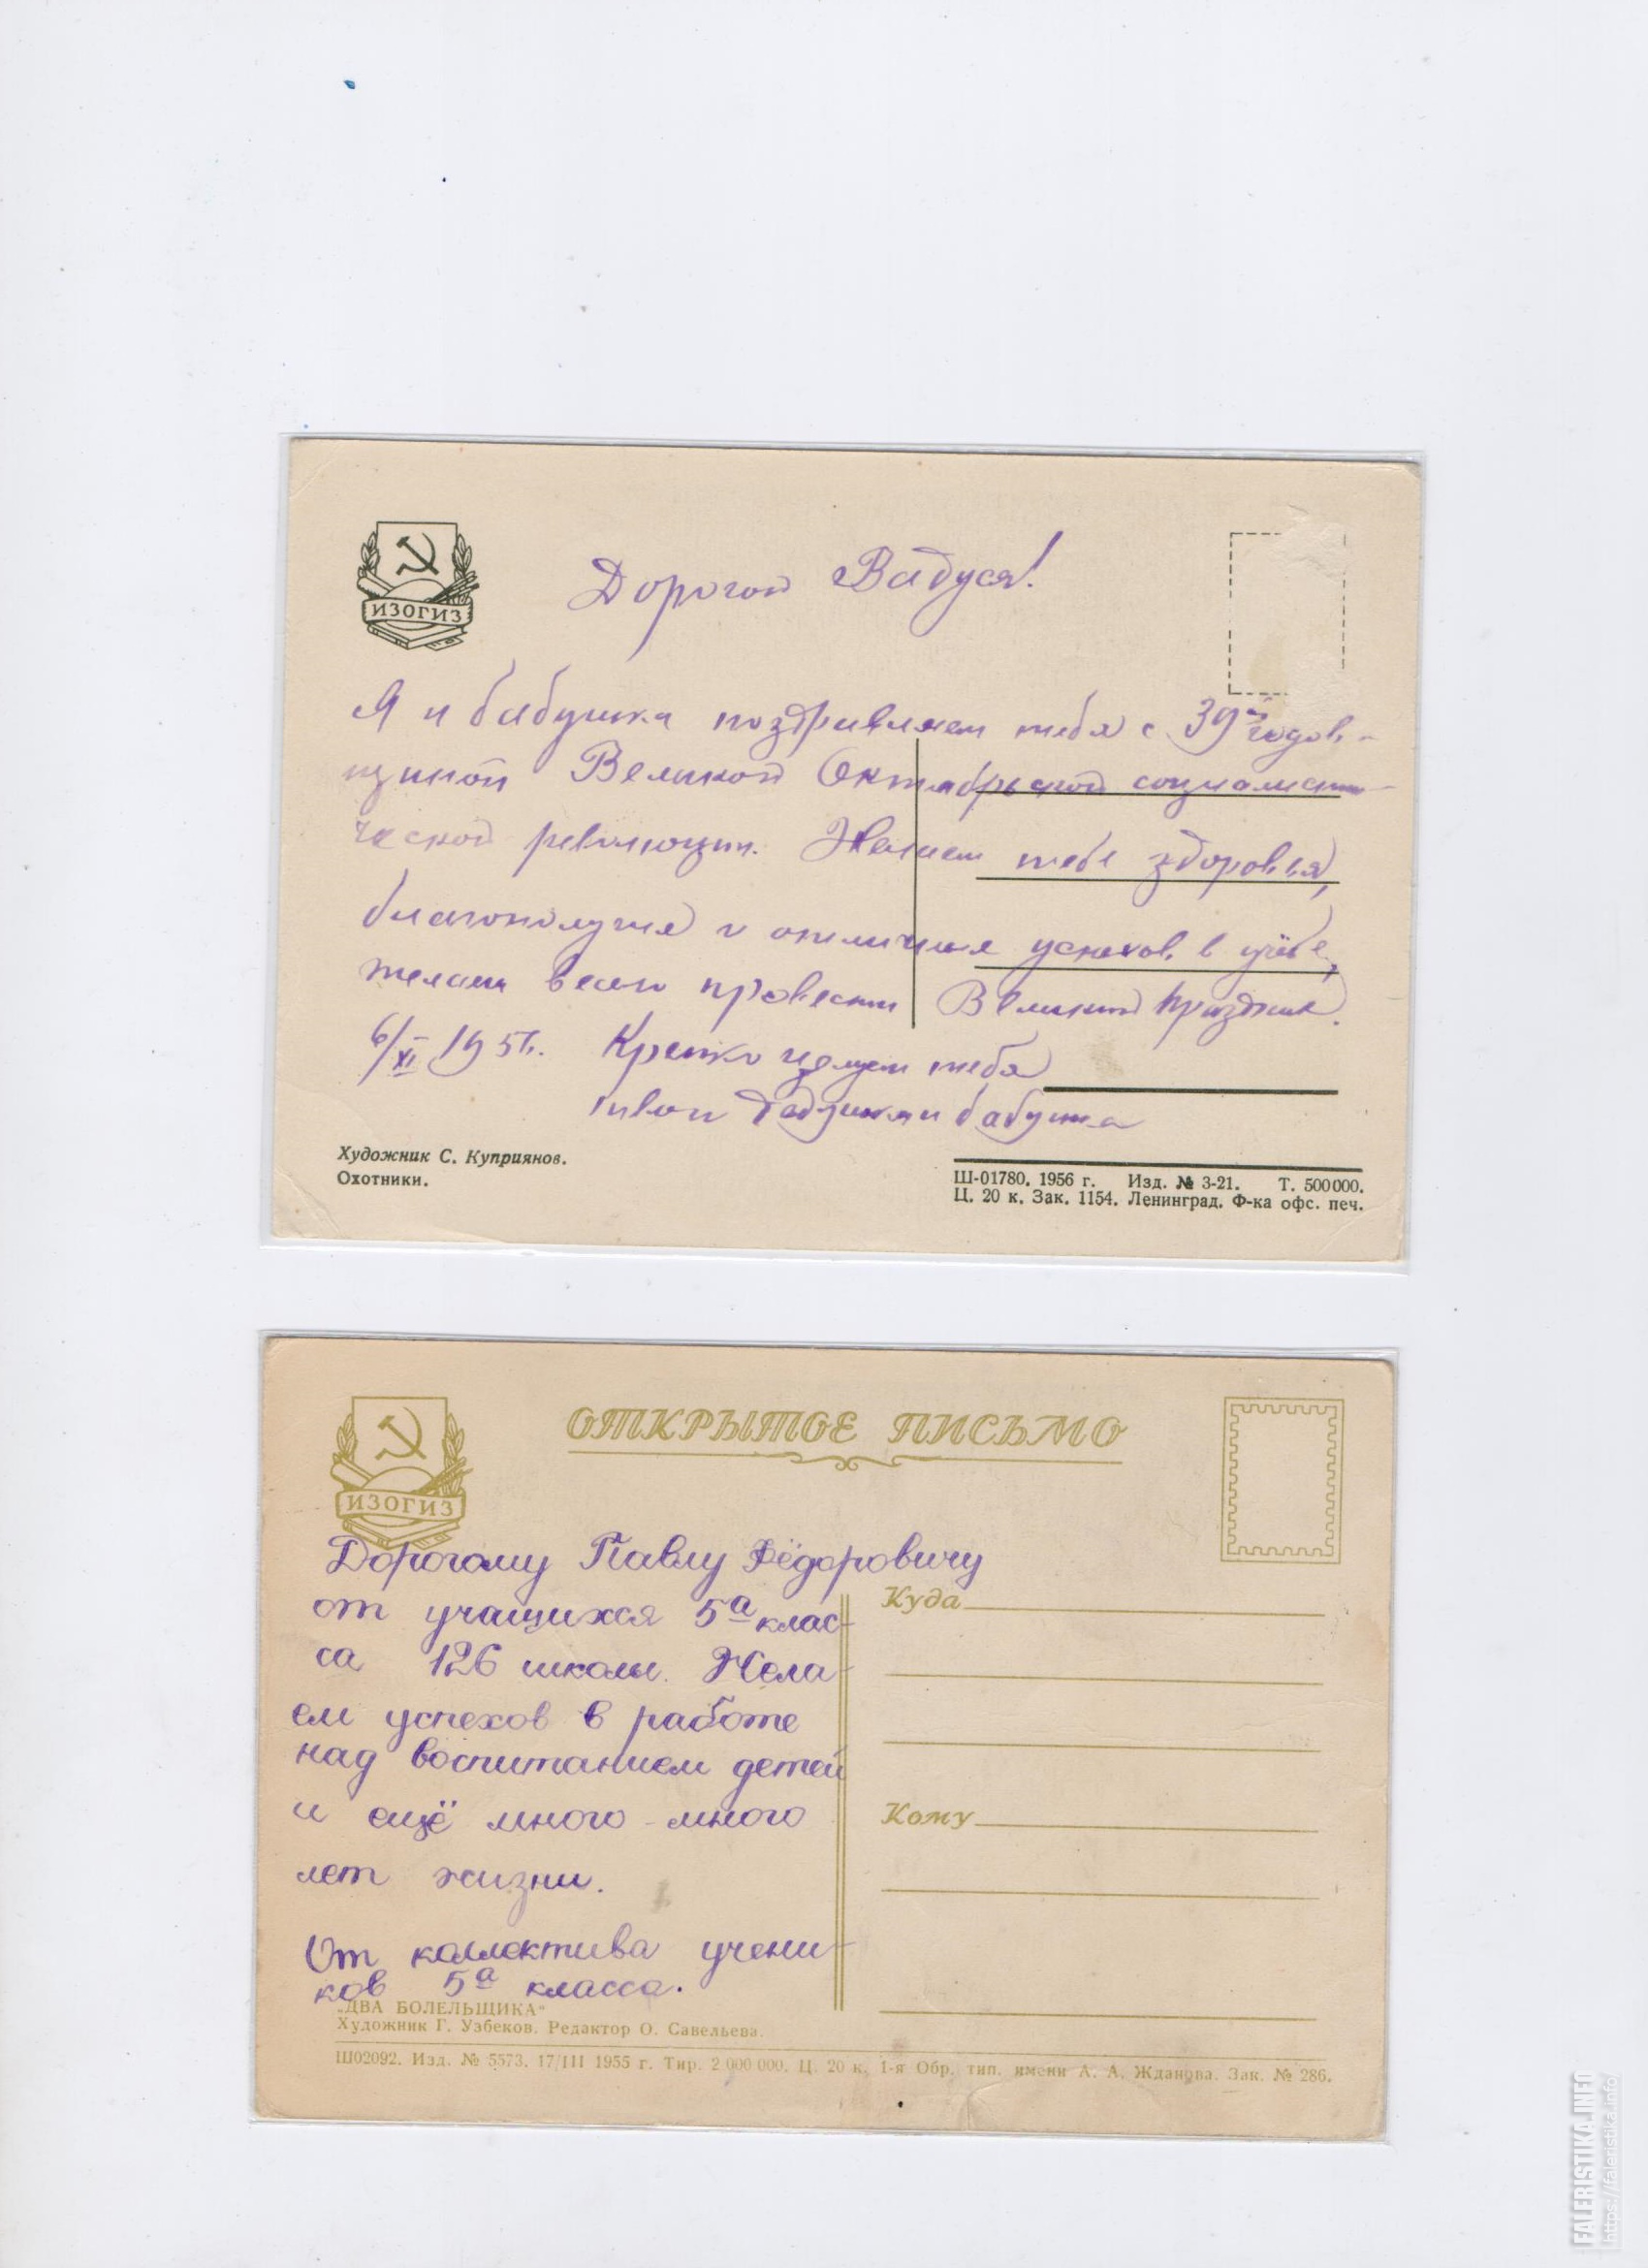 ИЗОГИЗ
Дорогой Вадуся!
Я и бабушка поздравляем тебя с 39й годов-
щиной Великой Октябрьской социалисти-
ческой революции. Желаем тебе здоровья,
благополучия и отличных успехов в учёбе,
желаем весело провести Великий праздник.
6/XI 1956г. Крепко целуем тебя
твои дедушка и бабушка
Художник С. Куприянов.
Охотники.
Ш-01780. 1956 г. Изд. № 3-21. Т. 500000.
Ц. 20 к. Зак. 1154. Ленинград. Ф-ка офс. печ.
ОТКРЫТОЕ ПИСЬМО
ИЗОГИЗ
Дорогому Павлу Фёдоровичу
от учащихся 5а клас-
са 126 школы. Жела-
ем успехов в работе
над воспитанием детей
и ещё много-много
лет жизни.
От коллектива учени-
ков 5а класса.
Куда
Кому
„ДВА БОЛЕЛЬЩИКА“
Художник Г. Узбеков. Редактор О. Савельева.
Ш02092. Изд. № 5573. 17/III 1955 г. Тир. 2 000 000. Ц. 20 к. 1-я Обр. тип. имени А. А. Жданова. Зак. № 286.
FALERISTIKA.INFO
https://faleristika.info